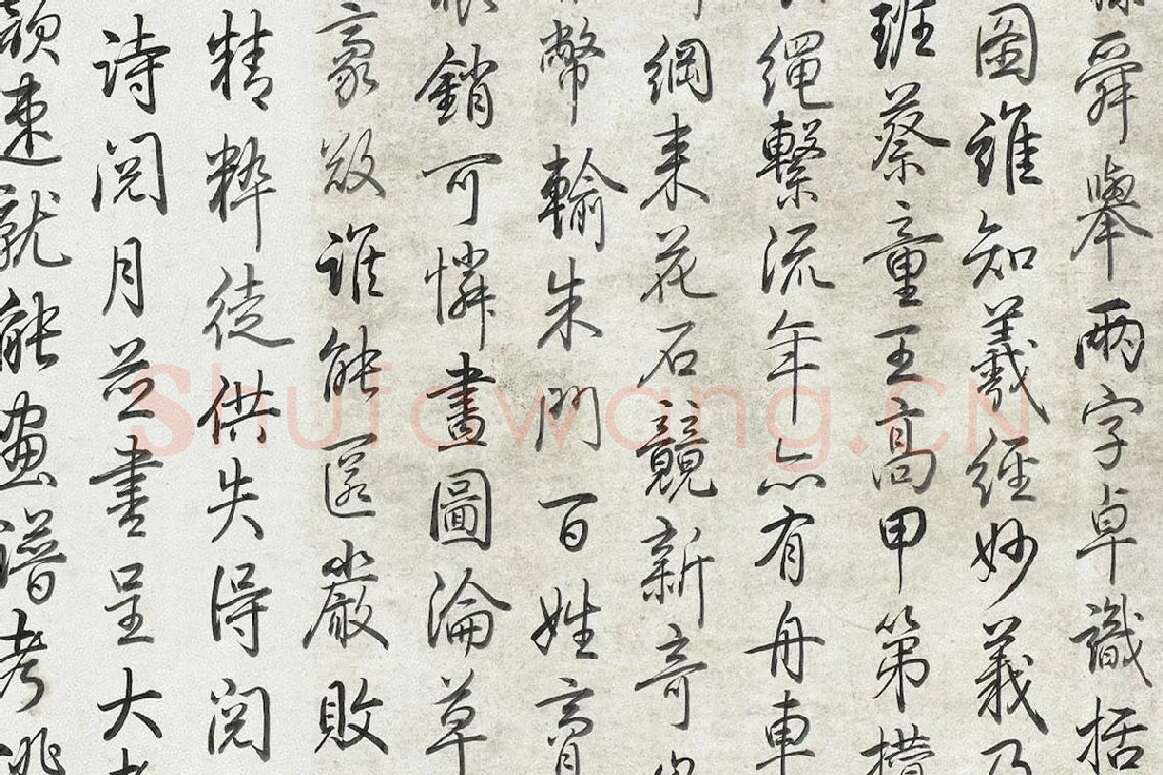 舜舉兩字卓識括
圖誰知羲經妙義乃
班蔡童王高甲第
繩繫流年亦有舟車
綱來花石競新奇
幣輸朱門百姓
銷可憐畫圖淪草
豪敚誰能匿嚴敗
精粹徒供失得閱
诗阅月並書呈大
速就能画谱考
Shufawang.CN